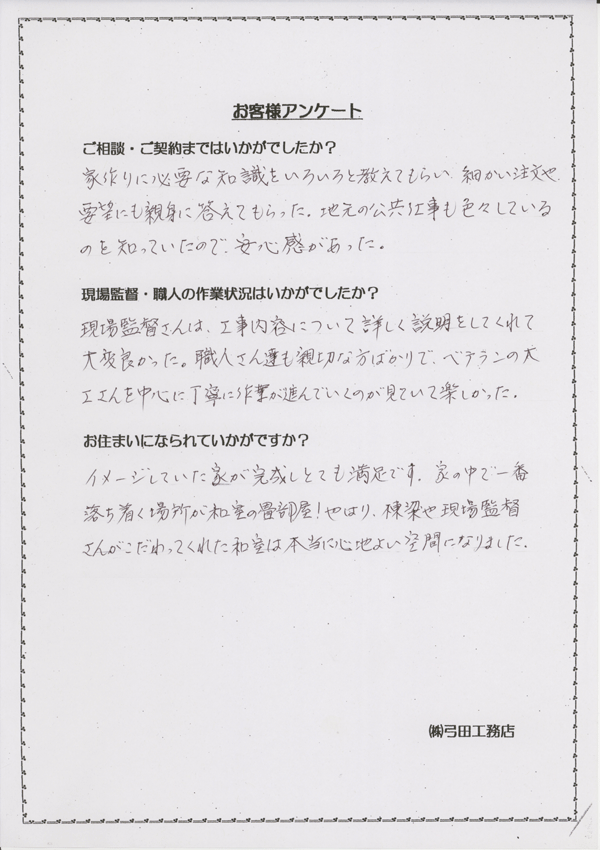 お客様アンケート
ご相談・ご契約まではいかがでしたか？
家作りに必要な知識をいろいろと教えてもらい、細かい注文や
要望にも親身に答えてもらった。地元の公共仕事も色々している
のを知っていたので、安心感があった。
現場監督・職人の作業状況はいかがでしたか？
現場監督さんは、工事内容について詳しく説明をしてくれて
大変良かった。職人さん達も親切な方ばかりで、ベテランの大
工さんを中心に丁寧に作業が進んでいくのが見ていて楽しかった。
お住まいになられていかがですか？
イメージしていた家が完成しとても満足です。家の中で一番
落ち着く場所が和室の畳部屋！やはり、棟梁や現場監督
さんがこだわってくれた和室は本当に心地よい空間になりました。
㈱弓田工務店